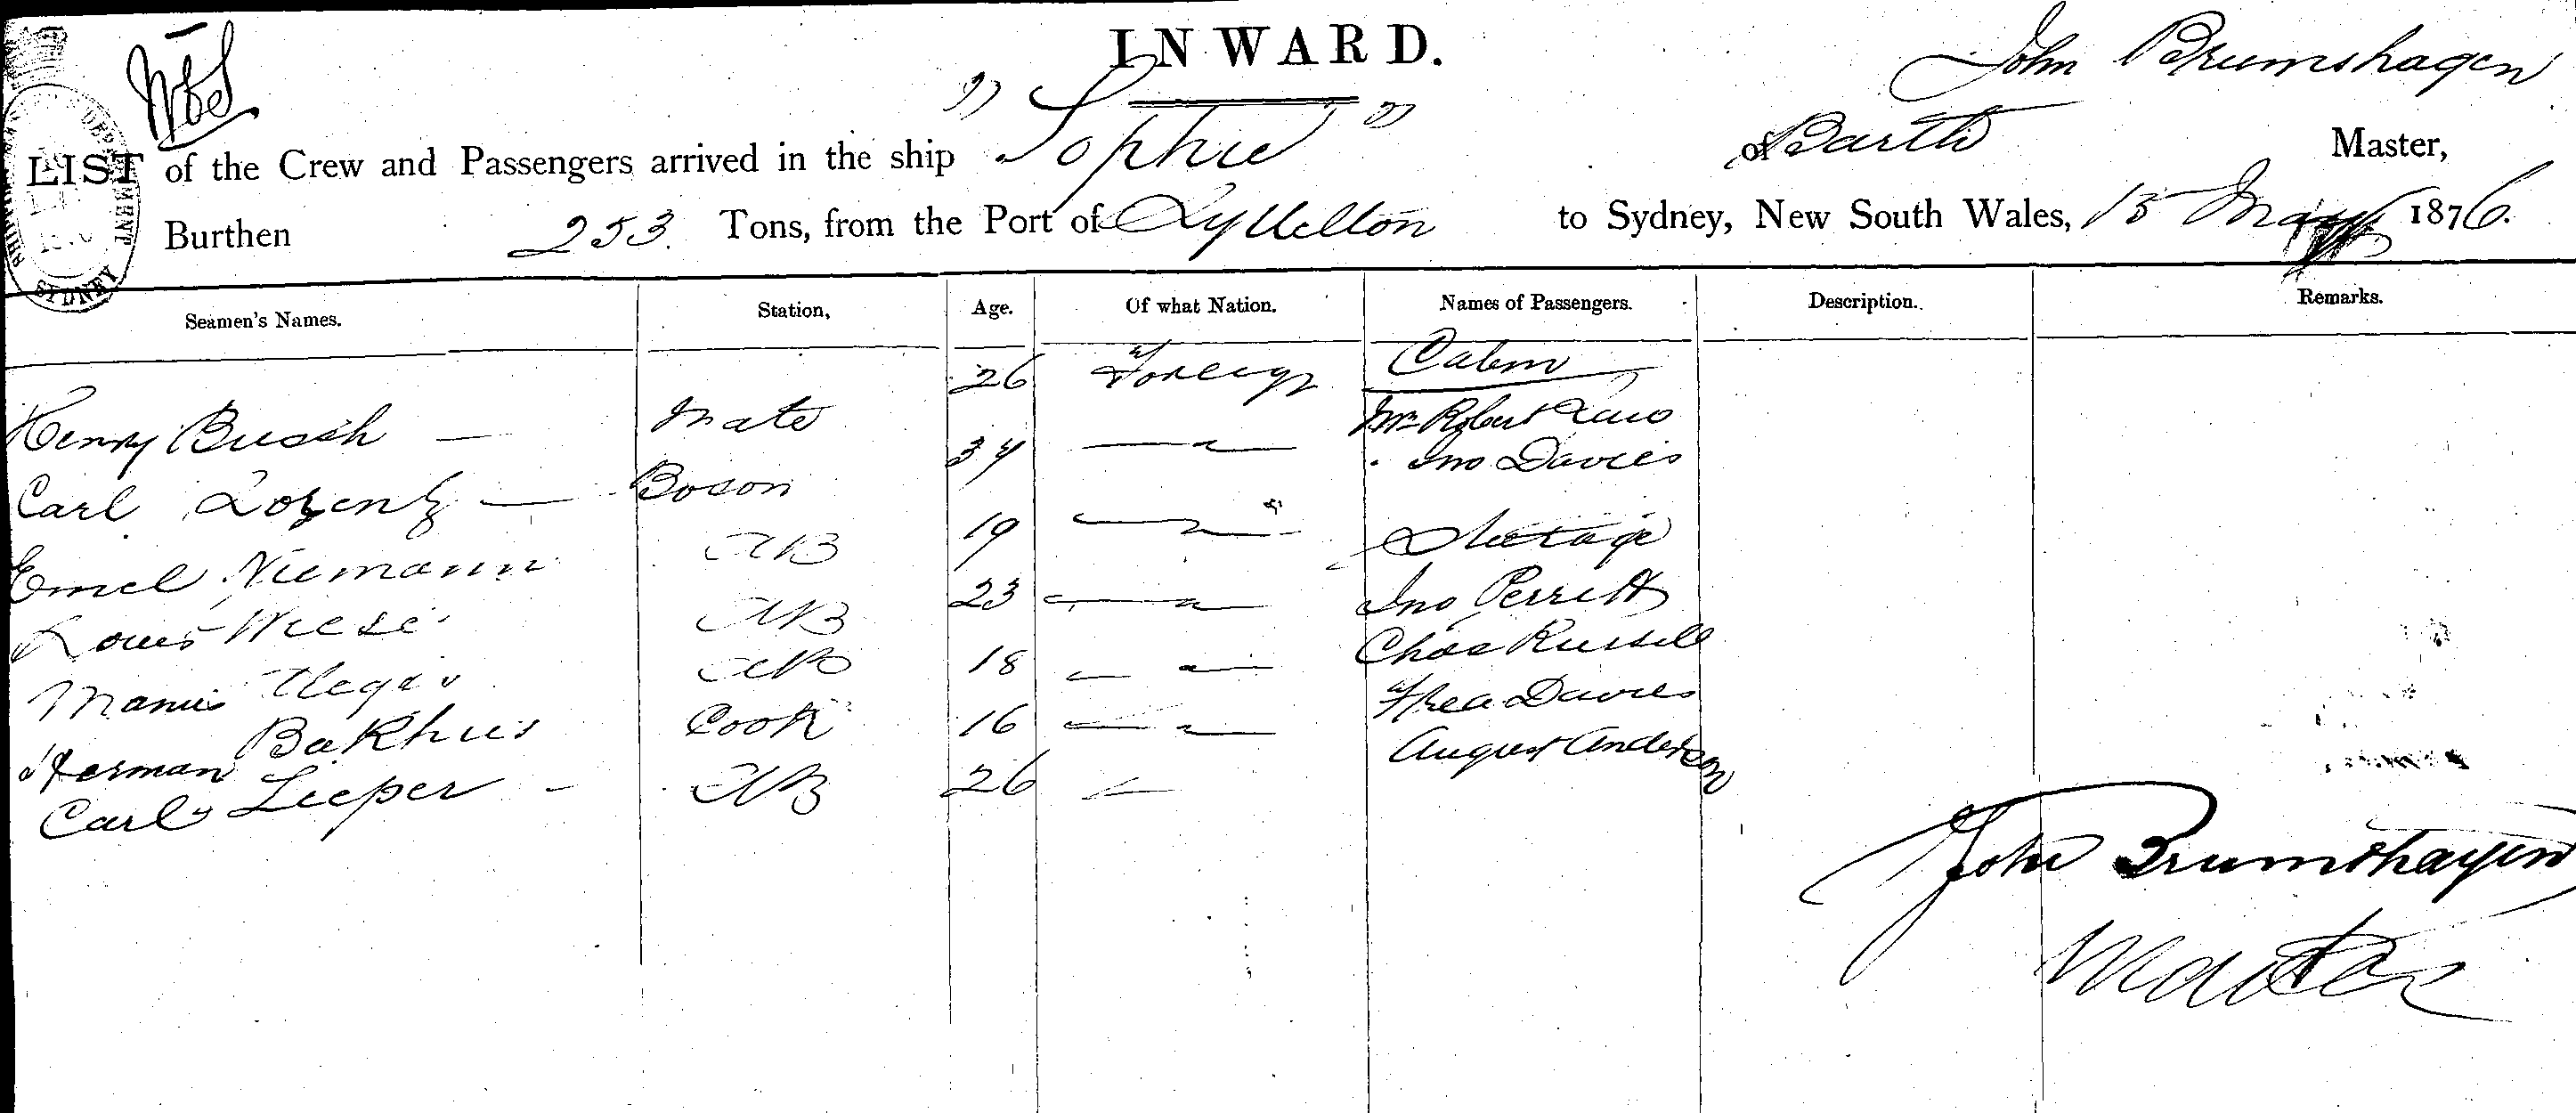 INWARD.
John Brumshagen
LIST of the Crew and Passengers arrived in the ship "Sophie" of Barth Master,
Burthen 253 Tons, from the Port of Lyttelton to Sydney, New South Wales, 15 May 1876.
Seamen's Names. Station, Age. Of what Nation. Names of Passengers. Description. Remarks.
Cabin
Henry Busch Mate 26 Foreign Mr Robert
Carl Lorentz Boson 34 Jno Davies
Emel Niemann AB 19 Steetage
Louis Wiese AB 23 Jno Perrett
AB 18 Chas Russell
Herman Bakhus Cook 16 Davies
Carl Lieper AB 26 August Anderson
John Brumshagen
Master
SYDNEY